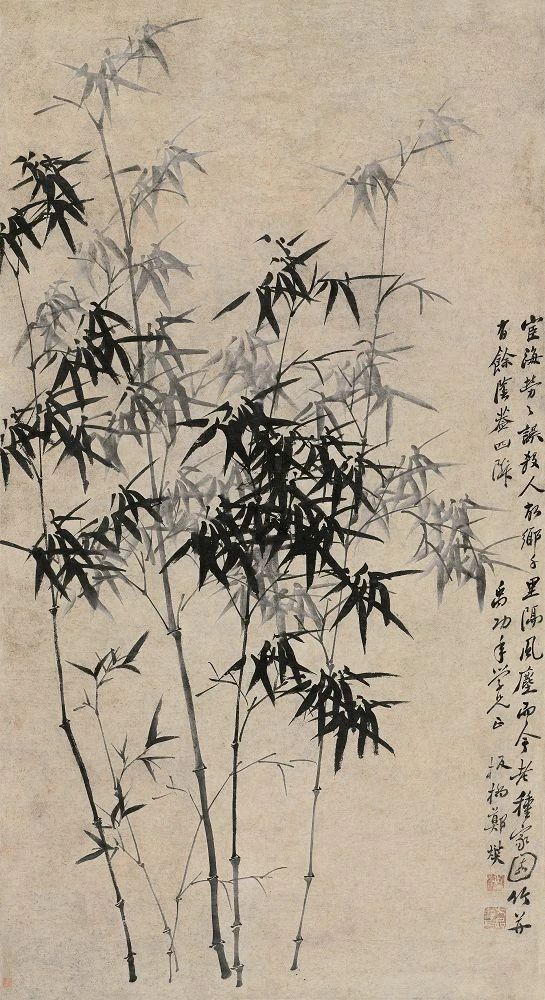 宦海勞〻誤殺人故鄉千里隔風塵而今老種家園竹
有餘陰蔭四隣
禹功年學兄正
板橋鄭燮